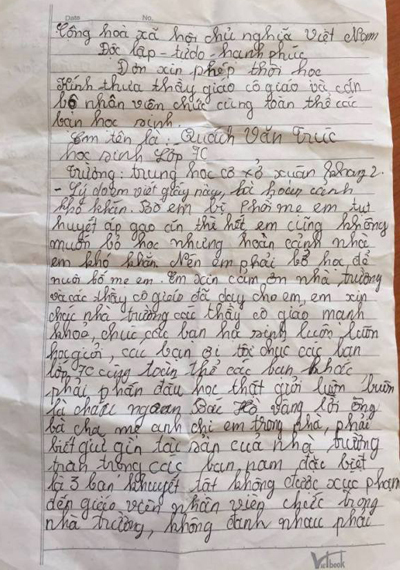 Date No.
Cộng hoà xã hội chủ nghĩa Việt Nam
Độc lập - tự do - hạnh phúc
Đơn xin phép thôi học
Kính thưa thầy giáo cô giáo và cán
bộ nhân viên chức cùng toàn thể các
bạn học sinh
Em tên là: Quách Văn Trúc
học sinh Lớp 7C
Trường: trung học cơ xở xuân phang 2.
- Lí do em viết giấy này, là hoàn cảnh
khó khăn. Bố em bị Phổi mẹ em tụt
huyết áp gạo ăn thì hết em cũng không
muốn bỏ học nhưng hoàn cảnh nhà
em khó khăn. Nên em phải bỏ học để
nuôi bố mẹ em. Em xin cảm ơn nhà trường
và các thầy cô giáo đã dạy cho em, em xin
chúc nhà trường các thầy cô giáo mạnh
khoẻ, chúc các bạn học sinh luôn luôn
học giỏi, các bạn ơi tôi chúc các bạn
lớp 7C cùng toàn thể các bạn khác
phải phấn đấu học thật giỏi luôn luôn
là cháu ngoan Bác Hồ vâng lời ông
bà cha mẹ anh chị em trong nhà, phải
biết giữ gìn tài sản của nhà trường
trân trọng các bạn nam đặc biệt
là 3 bạn khuyết tật không được xúc phạm
đến giáo viên nhân viên chức trong
nhà trường, không đánh nhau phải